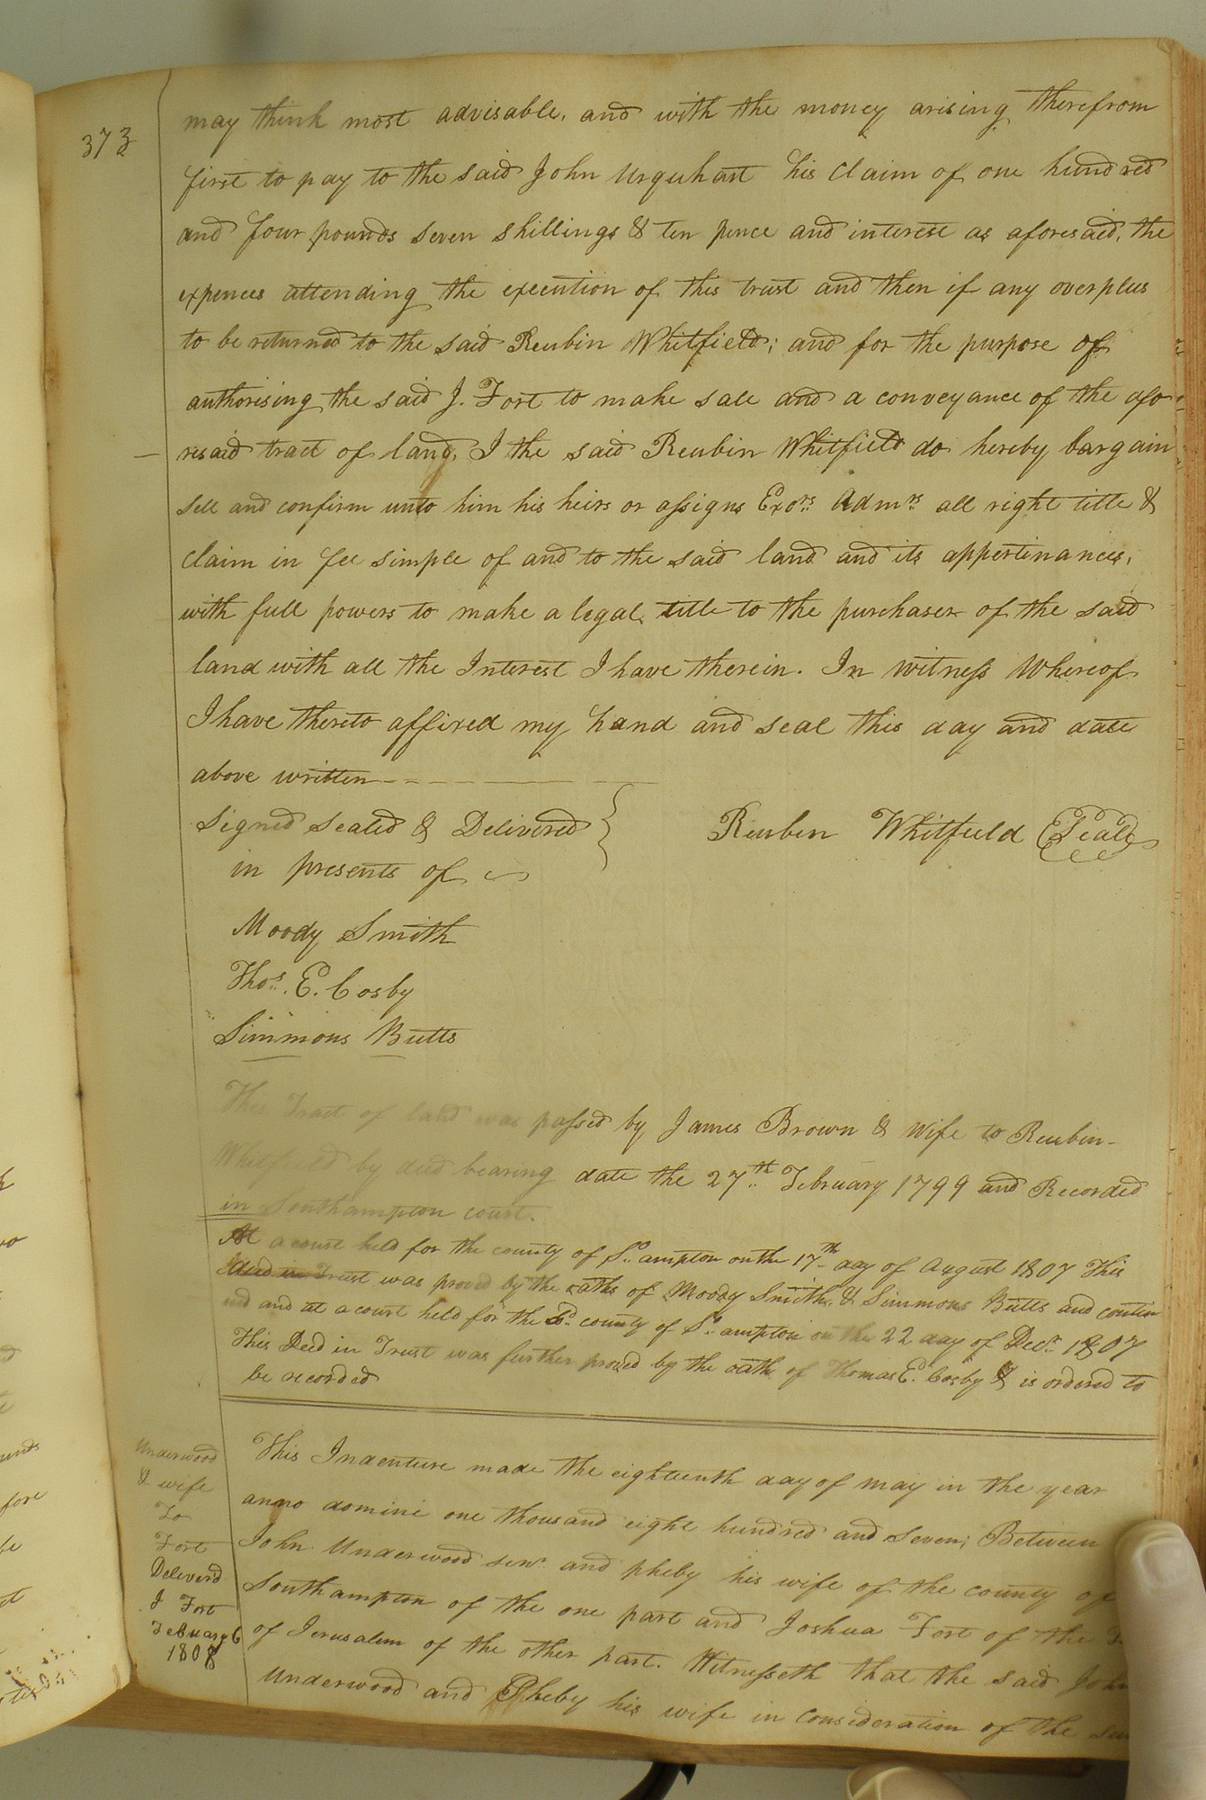 373
may think most advisable, and with the money arising therefrom
first to pay to the said John Urquhart his claim of one hundred
and four pounds seven shillings & ten pence and interest as aforesaid, the
expences attending the execution of this trust and then if any overplus
to be returned to the said Reubin Whitfield; and for the purpose of
authorising the said J. Fort to make sale and a conveyance of the afo
resaid tract of land, I the said Reubin Whitfield do hereby bargain
sell and confirm unto him his heirs or assigns Exors Admrs all right title &
claim in fee simple of and to the said land and its appertinances,
with full powers to make a legal title to the purchaser of the said
land with all the Interest I have therein. In witness Whereof
I have thereto affixed my hand and seal this day and date
above written
Signed sealed & Delivered } Reuben Whitfield Seal
in presents of
Moody Smith
Thos. E. Cosby
Simmons Butts
This Tract of land was passed by James Brown & Wife to Reubin
Whitfield by deed bearing date the 27th February 1799 and Recorded
in Southampton court.
At a court held for the county of So.ampton on the 17th day of August 1807 This
deed in Trust was proved by the oaths of Moody Smith, & Simmons Butts and contin
ued and at a court held for the sd. county of So.ampton on the 22 day of Decr. 1807
This Deed in Trust was further proved by the oath of Thomas E. Cosby & is ordered to
be recorded
Underwood
& wife
To
Fort
Deliverd
J Fort
Febuary 6
1808
This Indenture made the eighteenth day of may in the year
anno domini one thousand eight hundred and seven; Between
John Underwood senr. and pheby his wife of the county of
Southampton of the one part and Joshua Fort of the
of Jerusalem of the other part. Witnesseth that the said John
Underwood and Pheby his wife in consideration of the